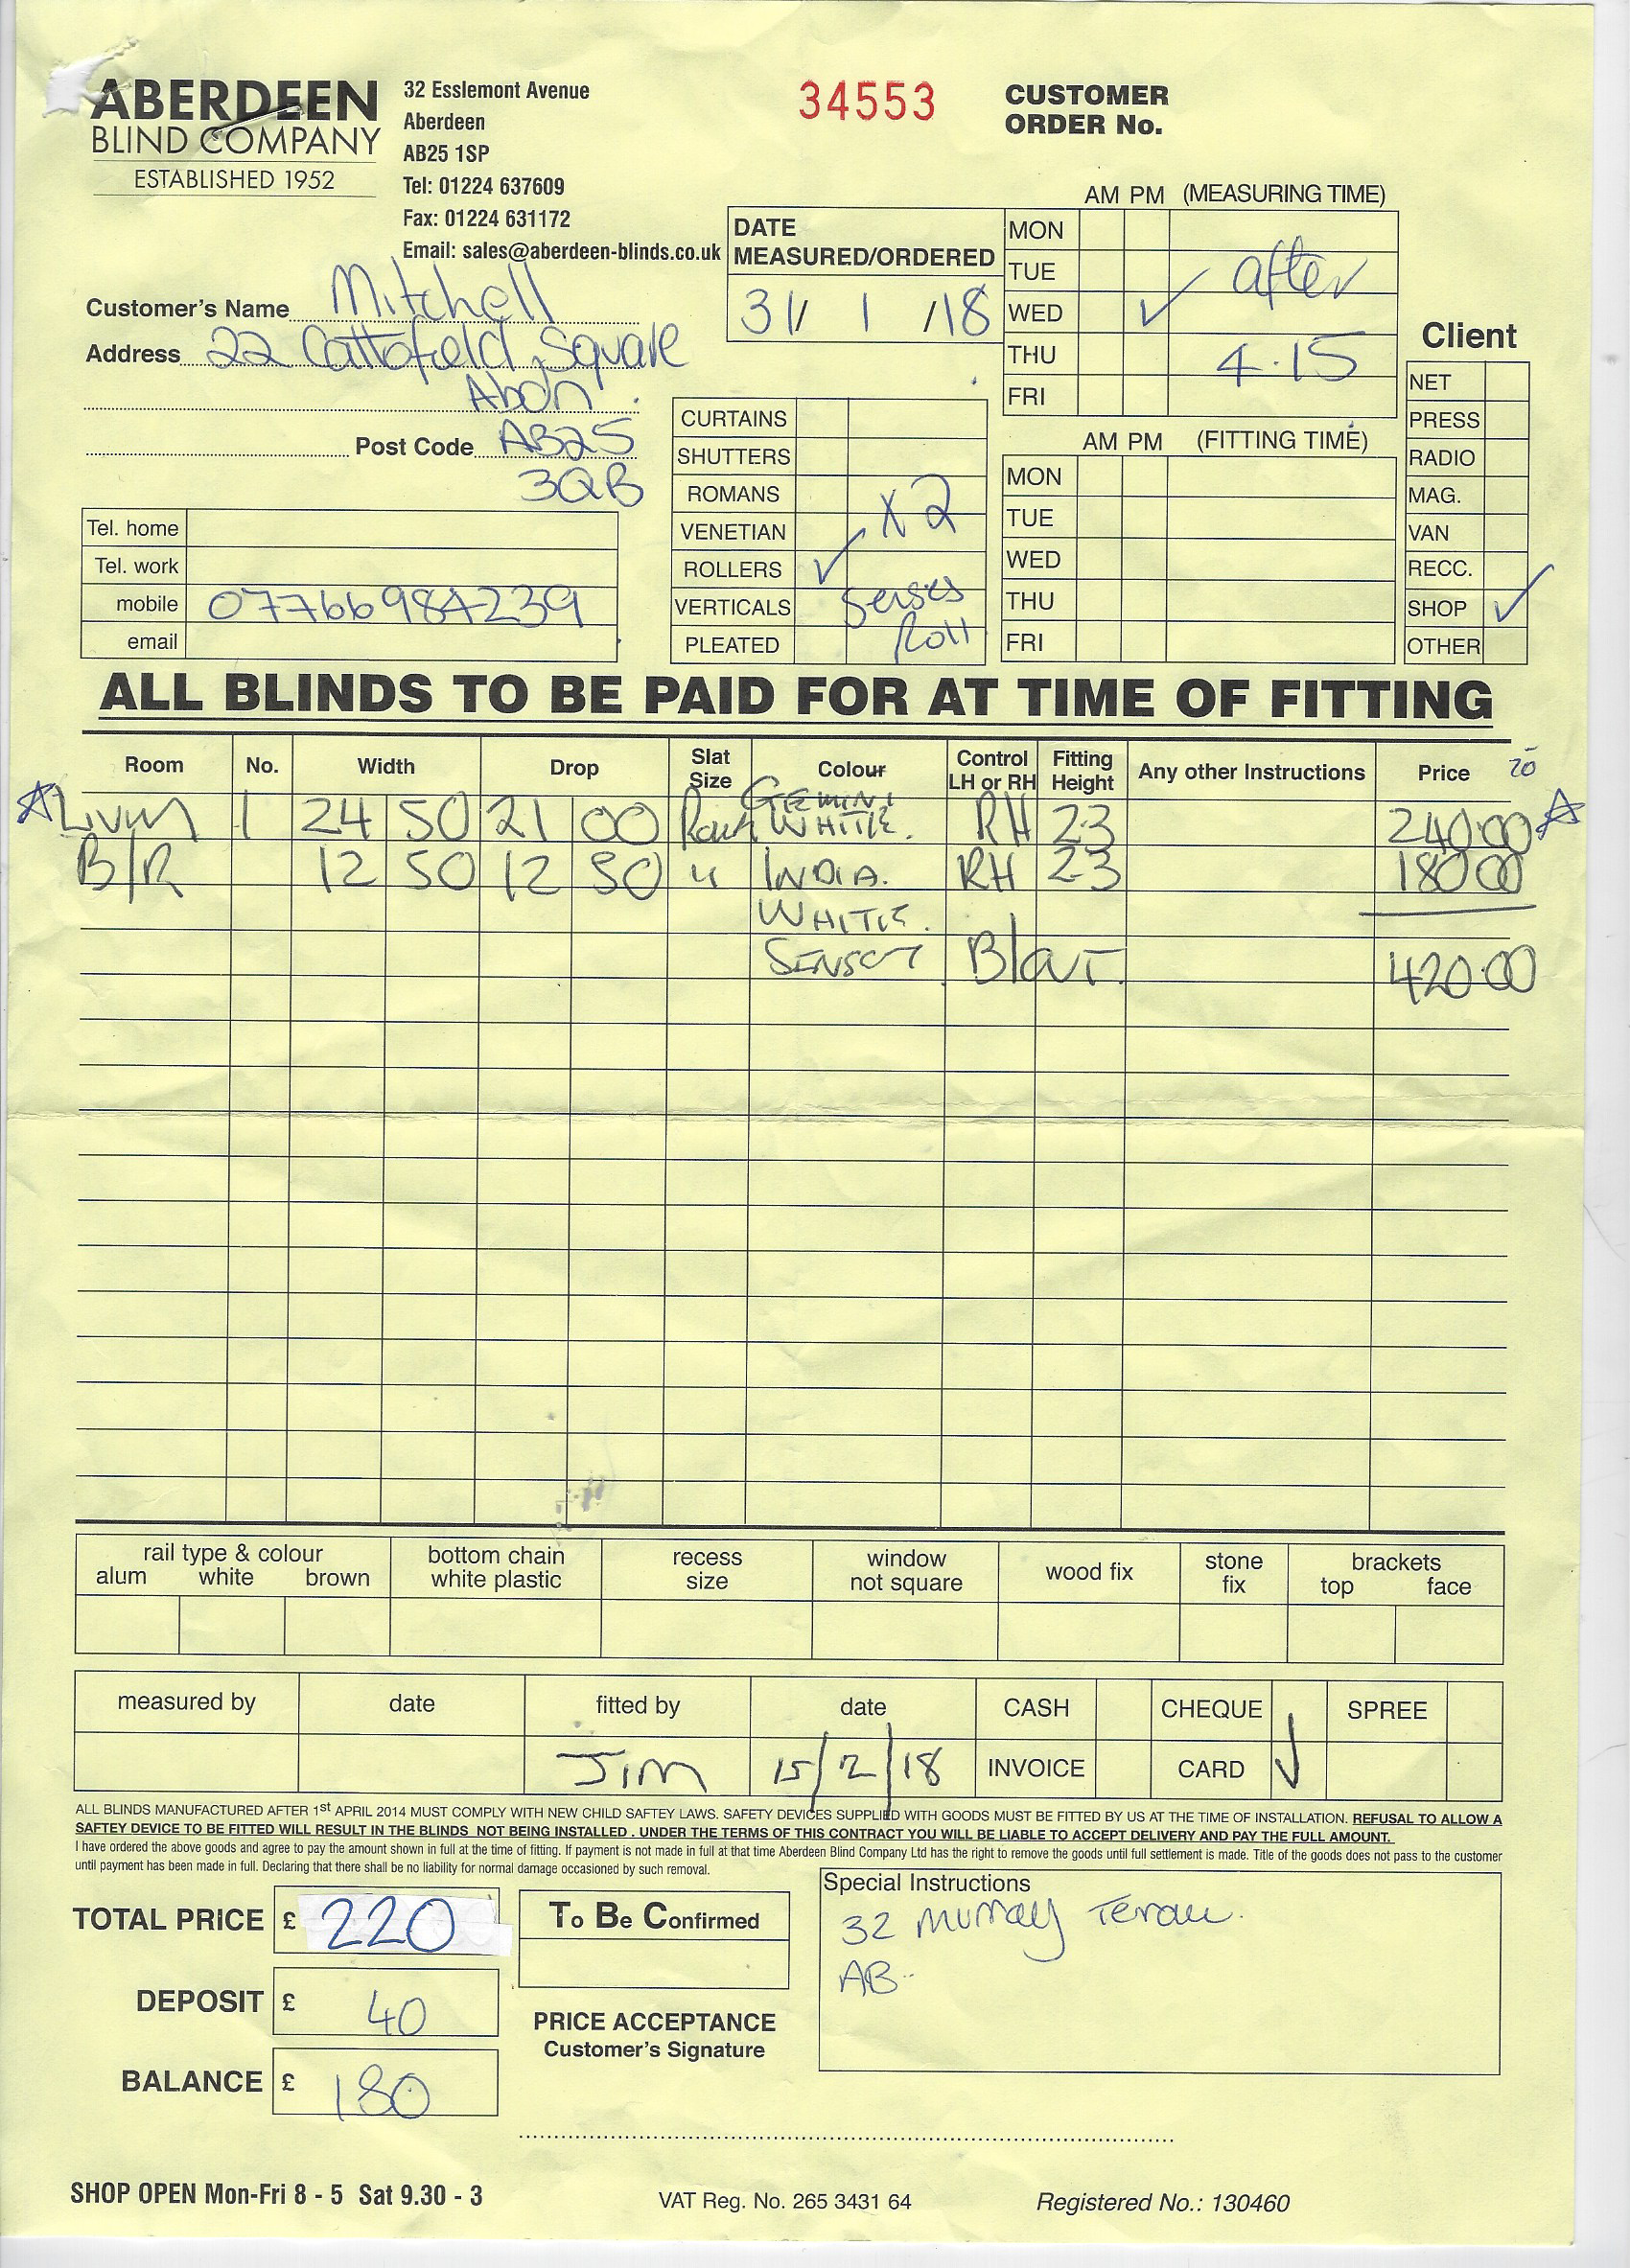 ABERDEEN
BLIND COMPANY
ESTABLISHED 1952
32 Esslemont Avenue
Aberdeen
AB25 1SP
Tel: 01224 637609
Fax: 01224 631172
Email: sales@aberdeen-blinds.co.uk
34553
CUSTOMER
ORDER No.
AM PM (MEASURING TIME)
DATE
MEASURED/ORDERED
31/ 1 /18
MON
TUE
WED ✓
THU
FRI
after
4.15
Customer's Name Mitchell
Address 22 Cattofield Square
Abdn
Post Code AB25
3QB
Tel. home
Tel. work
mobile 07766984239
email
CURTAINS
SHUTTERS
ROMANS
VENETIAN
ROLLERS ✓
VERTICALS
PLEATED
x2
senses
Roll
AM PM (FITTING TIME)
MON
TUE
WED
THU
FRI
Client
NET
PRESS
RADIO
MAG.
VAN
RECC.
SHOP ✓
OTHER
ALL BLINDS TO BE PAID FOR AT TIME OF FITTING
Room No. Width Drop Slat Size Colour Control LH or RH Fitting Height Any other Instructions Price
1 24 50 21 00 GEMINI WHITE. RH 2.3 240.00
B/R 12 50 12 50 " INDIA. RH 2.3 180.00
WHITE.
420.00
rail type & colour
alum white brown
bottom chain
white plastic
recess
size
window
not square
wood fix
stone
fix
brackets
top face
measured by date fitted by date CASH CHEQUE SPREE
Jim 15/2/18 INVOICE CARD ✓
ALL BLINDS MANUFACTURED AFTER 1st APRIL 2014 MUST COMPLY WITH NEW CHILD SAFTEY LAWS. SAFETY DEVICES SUPPLIED WITH GOODS MUST BE FITTED BY US AT THE TIME OF INSTALLATION. REFUSAL TO ALLOW A
SAFTEY DEVICE TO BE FITTED WILL RESULT IN THE BLINDS NOT BEING INSTALLED . UNDER THE TERMS OF THIS CONTRACT YOU WILL BE LIABLE TO ACCEPT DELIVERY AND PAY THE FULL AMOUNT.
I have ordered the above goods and agree to pay the amount shown in full at the time of fitting. If payment is not made in full at that time Aberdeen Blind Company Ltd has the right to remove the goods until full settlement is made. Title of the goods does not pass to the customer
until payment has been made in full. Declaring that there shall be no liability for normal damage occasioned by such removal.
TOTAL PRICE £ 220
DEPOSIT £ 40
BALANCE £ 180
To Be Confirmed
PRICE ACCEPTANCE
Customer's Signature
Special Instructions
32 Murray Terrace.
AB
SHOP OPEN Mon-Fri 8 - 5 Sat 9.30 - 3
VAT Reg. No. 265 3431 64
Registered No.: 130460